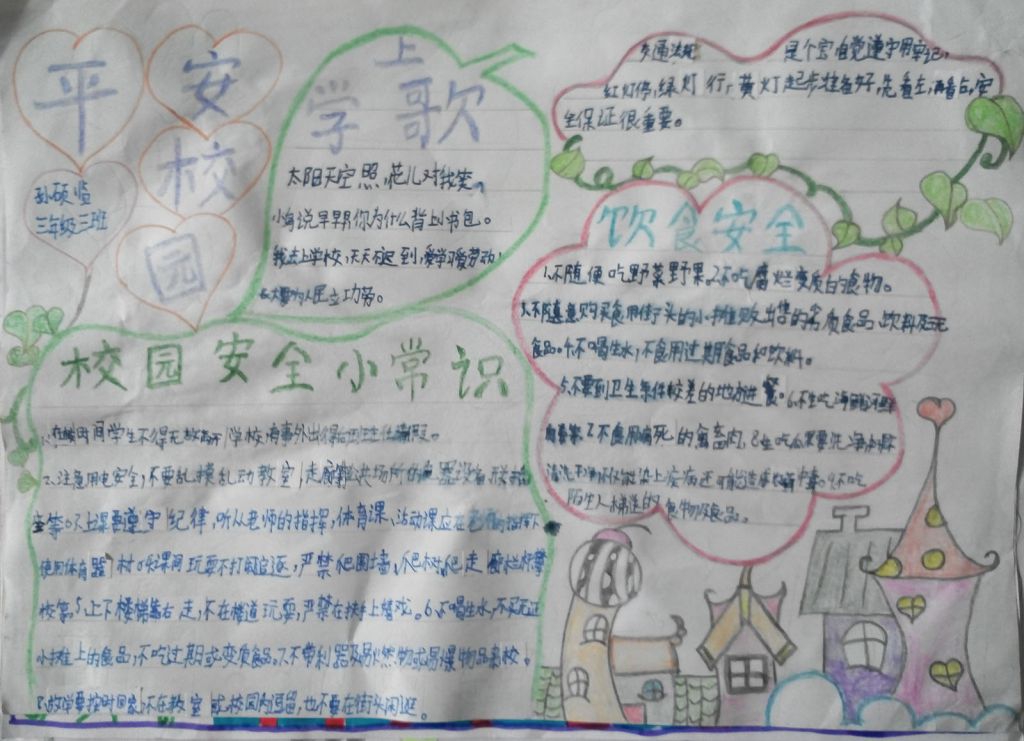 平安
校
园
孙硕临
三年级三班
上
学歌
太阳天空照,花儿对我笑。
小鸟说早早早你为什么背上小书包。
我去上学校,天天不迟到,爱学习爱劳动,
长大要为人民立功劳。
交通法规 是个宝 自觉遵守用牢记,
红灯停,绿灯行,黄灯起步准备好,先看左,再看右,安
全保证很重要。
饮食安全
1.不随便吃野菜野果。2.不吃腐烂变质的食物。
3.不随意购买食用街头的小摊贩出售的劣质食品、饮料及
食品。4.不喝生水,不食用过期食品和饮料。
5.不要到卫生条件较差的地方进餐。6.不生吃海鲜
7.不食用病死的禽畜肉,8.生吃瓜果要洗净
清洗不净 染上疾病还可能造成 中毒。9.不吃
陌生人 的食物及食品。
校园安全小常识
间学生不得无故离开学校,有事外出得 请假。
2.注意用电安全,不要乱摸乱动教室,走廊
等。3.上课要遵守纪律,听从老师的指挥,体育课、活动课应在老师的指挥下
使用体育器材。4.课间玩耍不打闹追逐,严禁爬围墙,爬树,爬走廊栏杆等
5.上下楼梯靠右走,不在楼道玩耍,严禁在扶手上嬉戏。6.不喝生水,不买无证
小摊上的食品,不吃过期或变质食品。7.不带利器及易燃物或易爆物品来校。
8.放学要按时回家,不在教室或校园内逗留,也不要在街头闲逛。